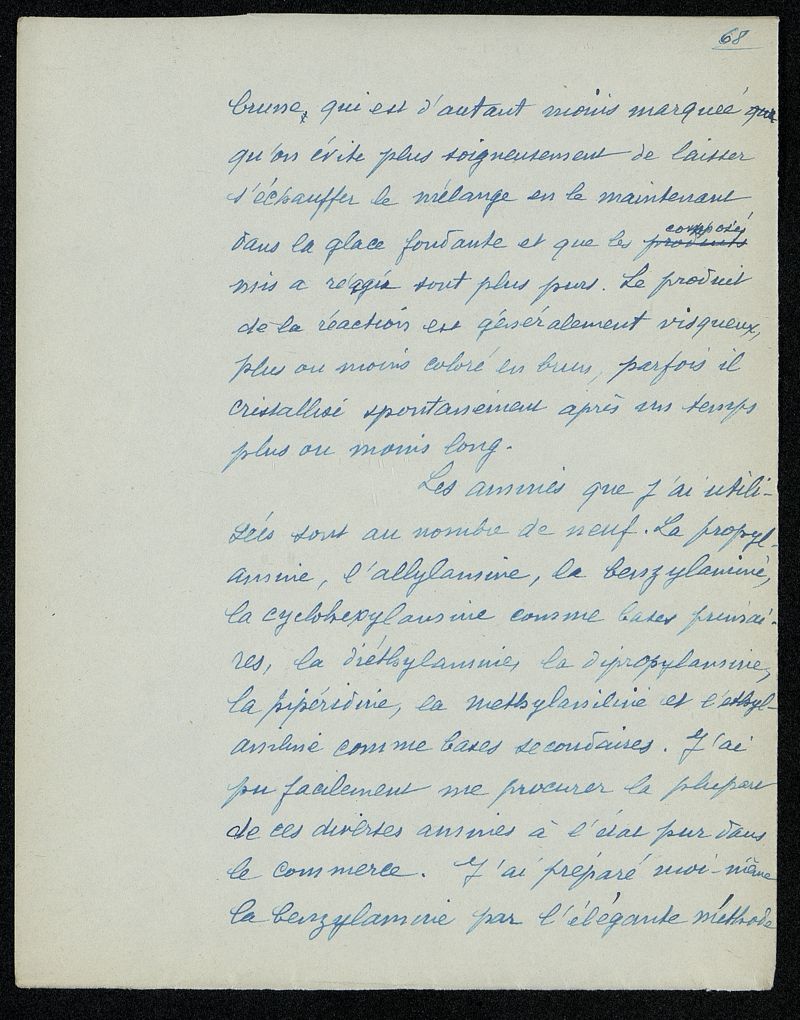 68
brune, qui est d'autant moins marquée que
qu'on évite plus soigneusement de laisser
s'échauffer le mélange en le maintenant
dans la glace fondante et que les produits composés
mis a réagir sont plus purs. Le produit
de la réaction est généralement visqueux,
plus ou moins coloré en brun, parfois il
cristallise spontanément après un temps
plus ou moins long.
Les amines que j'ai utili-
sées sont au nombre de neuf. La propyl-
amine, l'allylamine, la benzylamine,
la cyclohexylamine comme bases primai-
res, la diéthylamine, la dipropylamine,
la pipéridine, la méthylaniline et l'éthyl-
aniline comme bases secondaires. J'ai
pu facilement me procurer la plupart
de ces diverses amines à l'état pur dans
le commerce. J'ai préparé moi-même
la benzylamine par l'élégante méthode